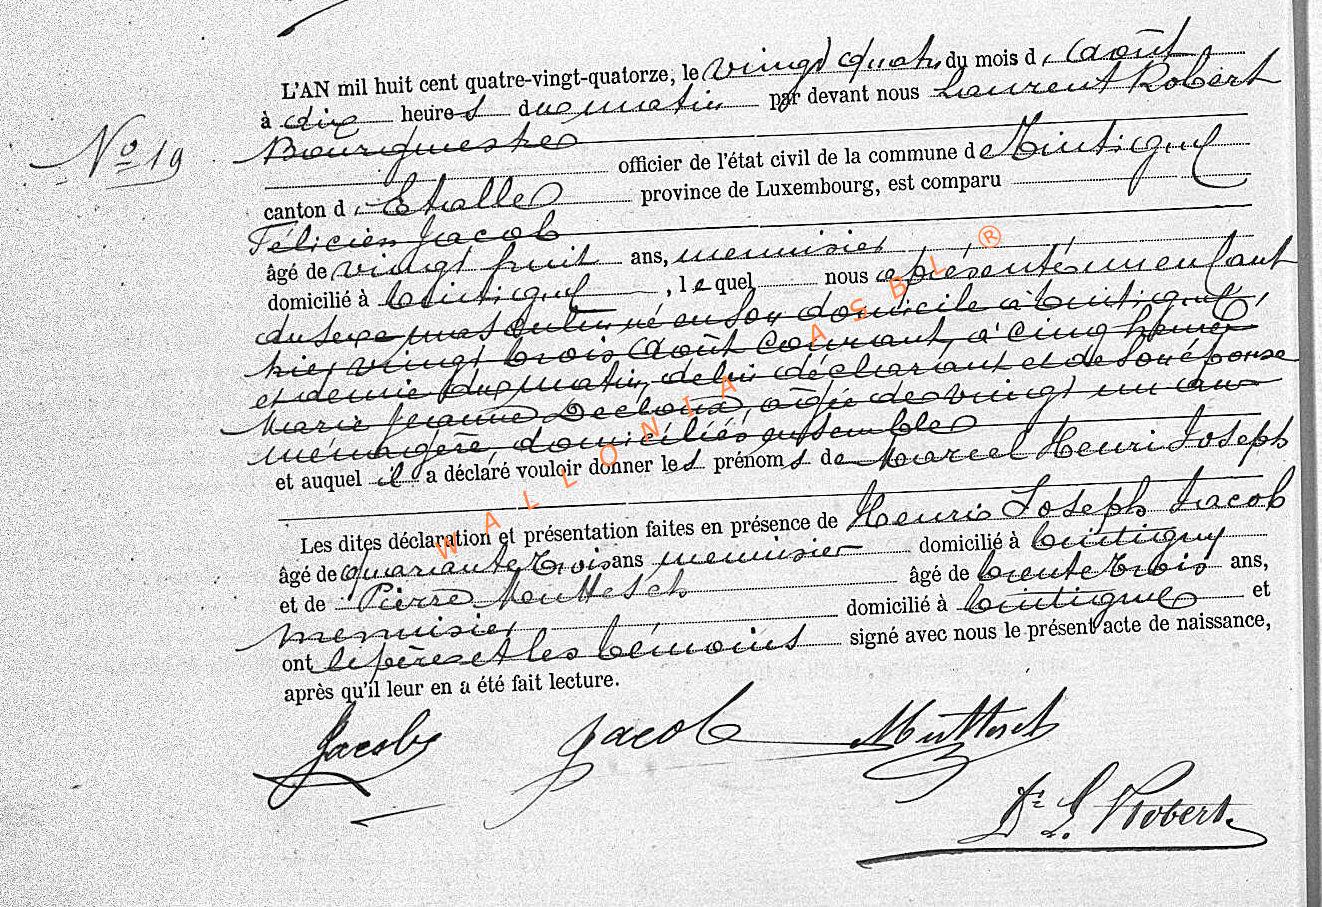 L'AN mil huit cent quatre-vingt-quatorze, le vingt quatre du mois d'août
à dix heures du matin par devant nous Laurent Robert
N° 19
Bourgmestre
officier de l'état civil de la commune de Tintigny
canton d'Etalle province de Luxembourg, est comparu
Félicien Jacob
âgé de vingt huit ans, menuisier
domicilié à Tintigny, lequel nous a présenté un enfant
du sexe masculin né en son domicile à Tintigny,
hier vingt trois août courant, à cinq heures
et demie du matin, de lui déclarant et de son épouse
Marie Jeanne âgée de vingt un ans
ménagère, domiciliés ensemble
et auquel il a déclaré vouloir donner les prénoms de Marcel Henri Joseph
Les dites déclaration et présentation faites en présence de Henri Joseph Jacob
âgé de quarante trois ans menuisier domicilié à Tintigny
et de Pierre Muttesch âgé de trente trois ans,
menuisier domicilié à Tintigny et
ont le père et les témoins signé avec nous le présent acte de naissance,
après qu'il leur en a été fait lecture.
Jacob Jacob
Dr L. Robert
WALLONIA ASBL ®